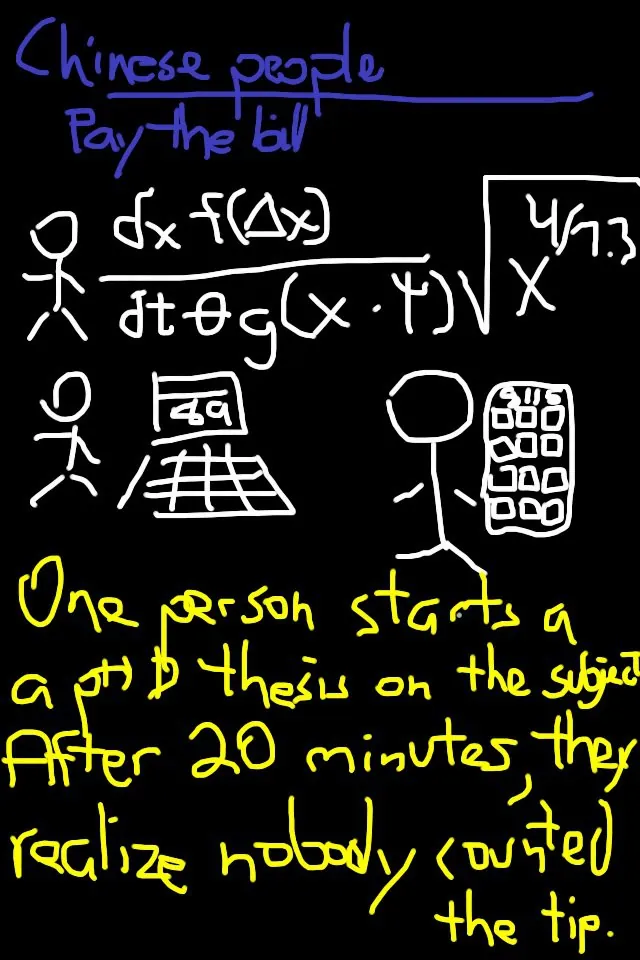 Chinese people
Pay the bill
dx f(Δx)
dt θ g(x · 4) √x^4/7.3
89
9115
One person starts a
a pH D thesis on the subject
After 20 minutes, they
realize nobody counted
the tip.